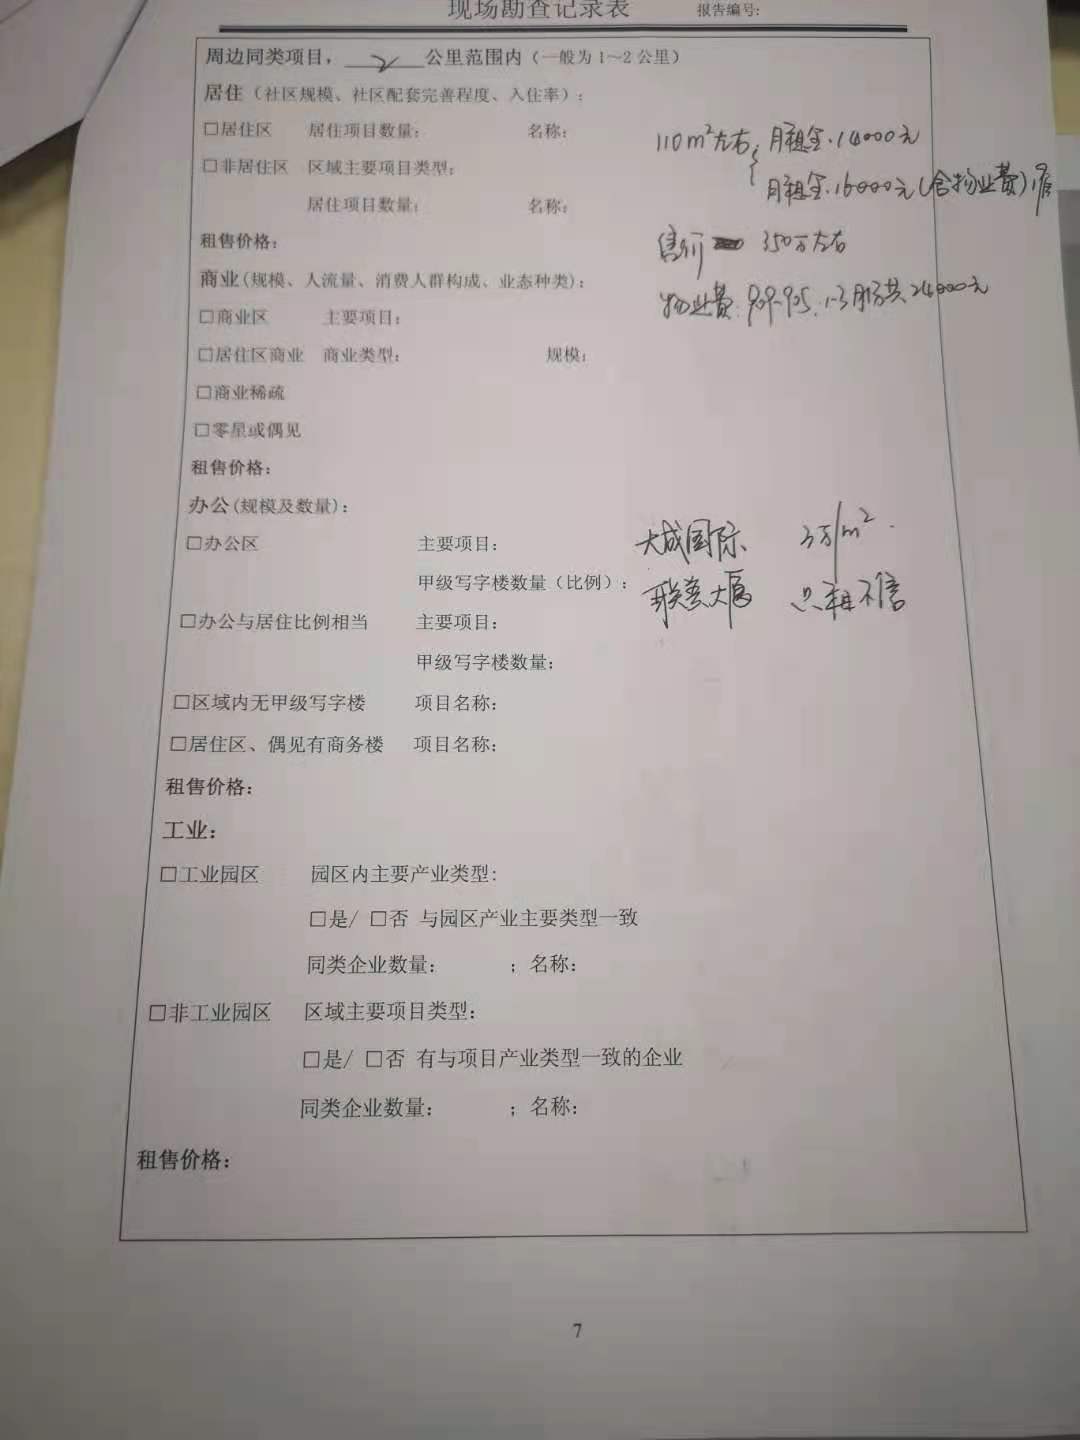 现场勘查记录表 报告编号:
周边同类项目，2公里范围内（一般为1～2公里）
居住（社区规模、社区配套完善程度、入住率）:
□居住区 居住项目数量： 名称： 110m²左右 月租金.14000元
□非居住区 区域主要项目类型： 月租金.16000元(含物业费)
居住项目数量： 名称：
租售价格： 售价 350万左右
商业(规模、人流量、消费人群构成、业态种类)： 物业费:909-905.1-3月份共24000元
□商业区 主要项目：
□居住区商业 商业类型： 规模：
□商业稀疏
□零星或偶见
租售价格：
办公(规模及数量)：
□办公区 主要项目： 大成国际 3万/m².
甲级写字楼数量（比例）： 大厦 只租不售
□办公与居住比例相当 主要项目：
甲级写字楼数量：
□区域内无甲级写字楼 项目名称：
□居住区、偶见有商务楼 项目名称：
租售价格：
工业：
□工业园区 园区内主要产业类型:
□是/ □否 与园区产业主要类型一致
同类企业数量： ；名称：
□非工业园区 区域主要项目类型：
□是/ □否 有与项目产业类型一致的企业
同类企业数量： ；名称：
租售价格：
7